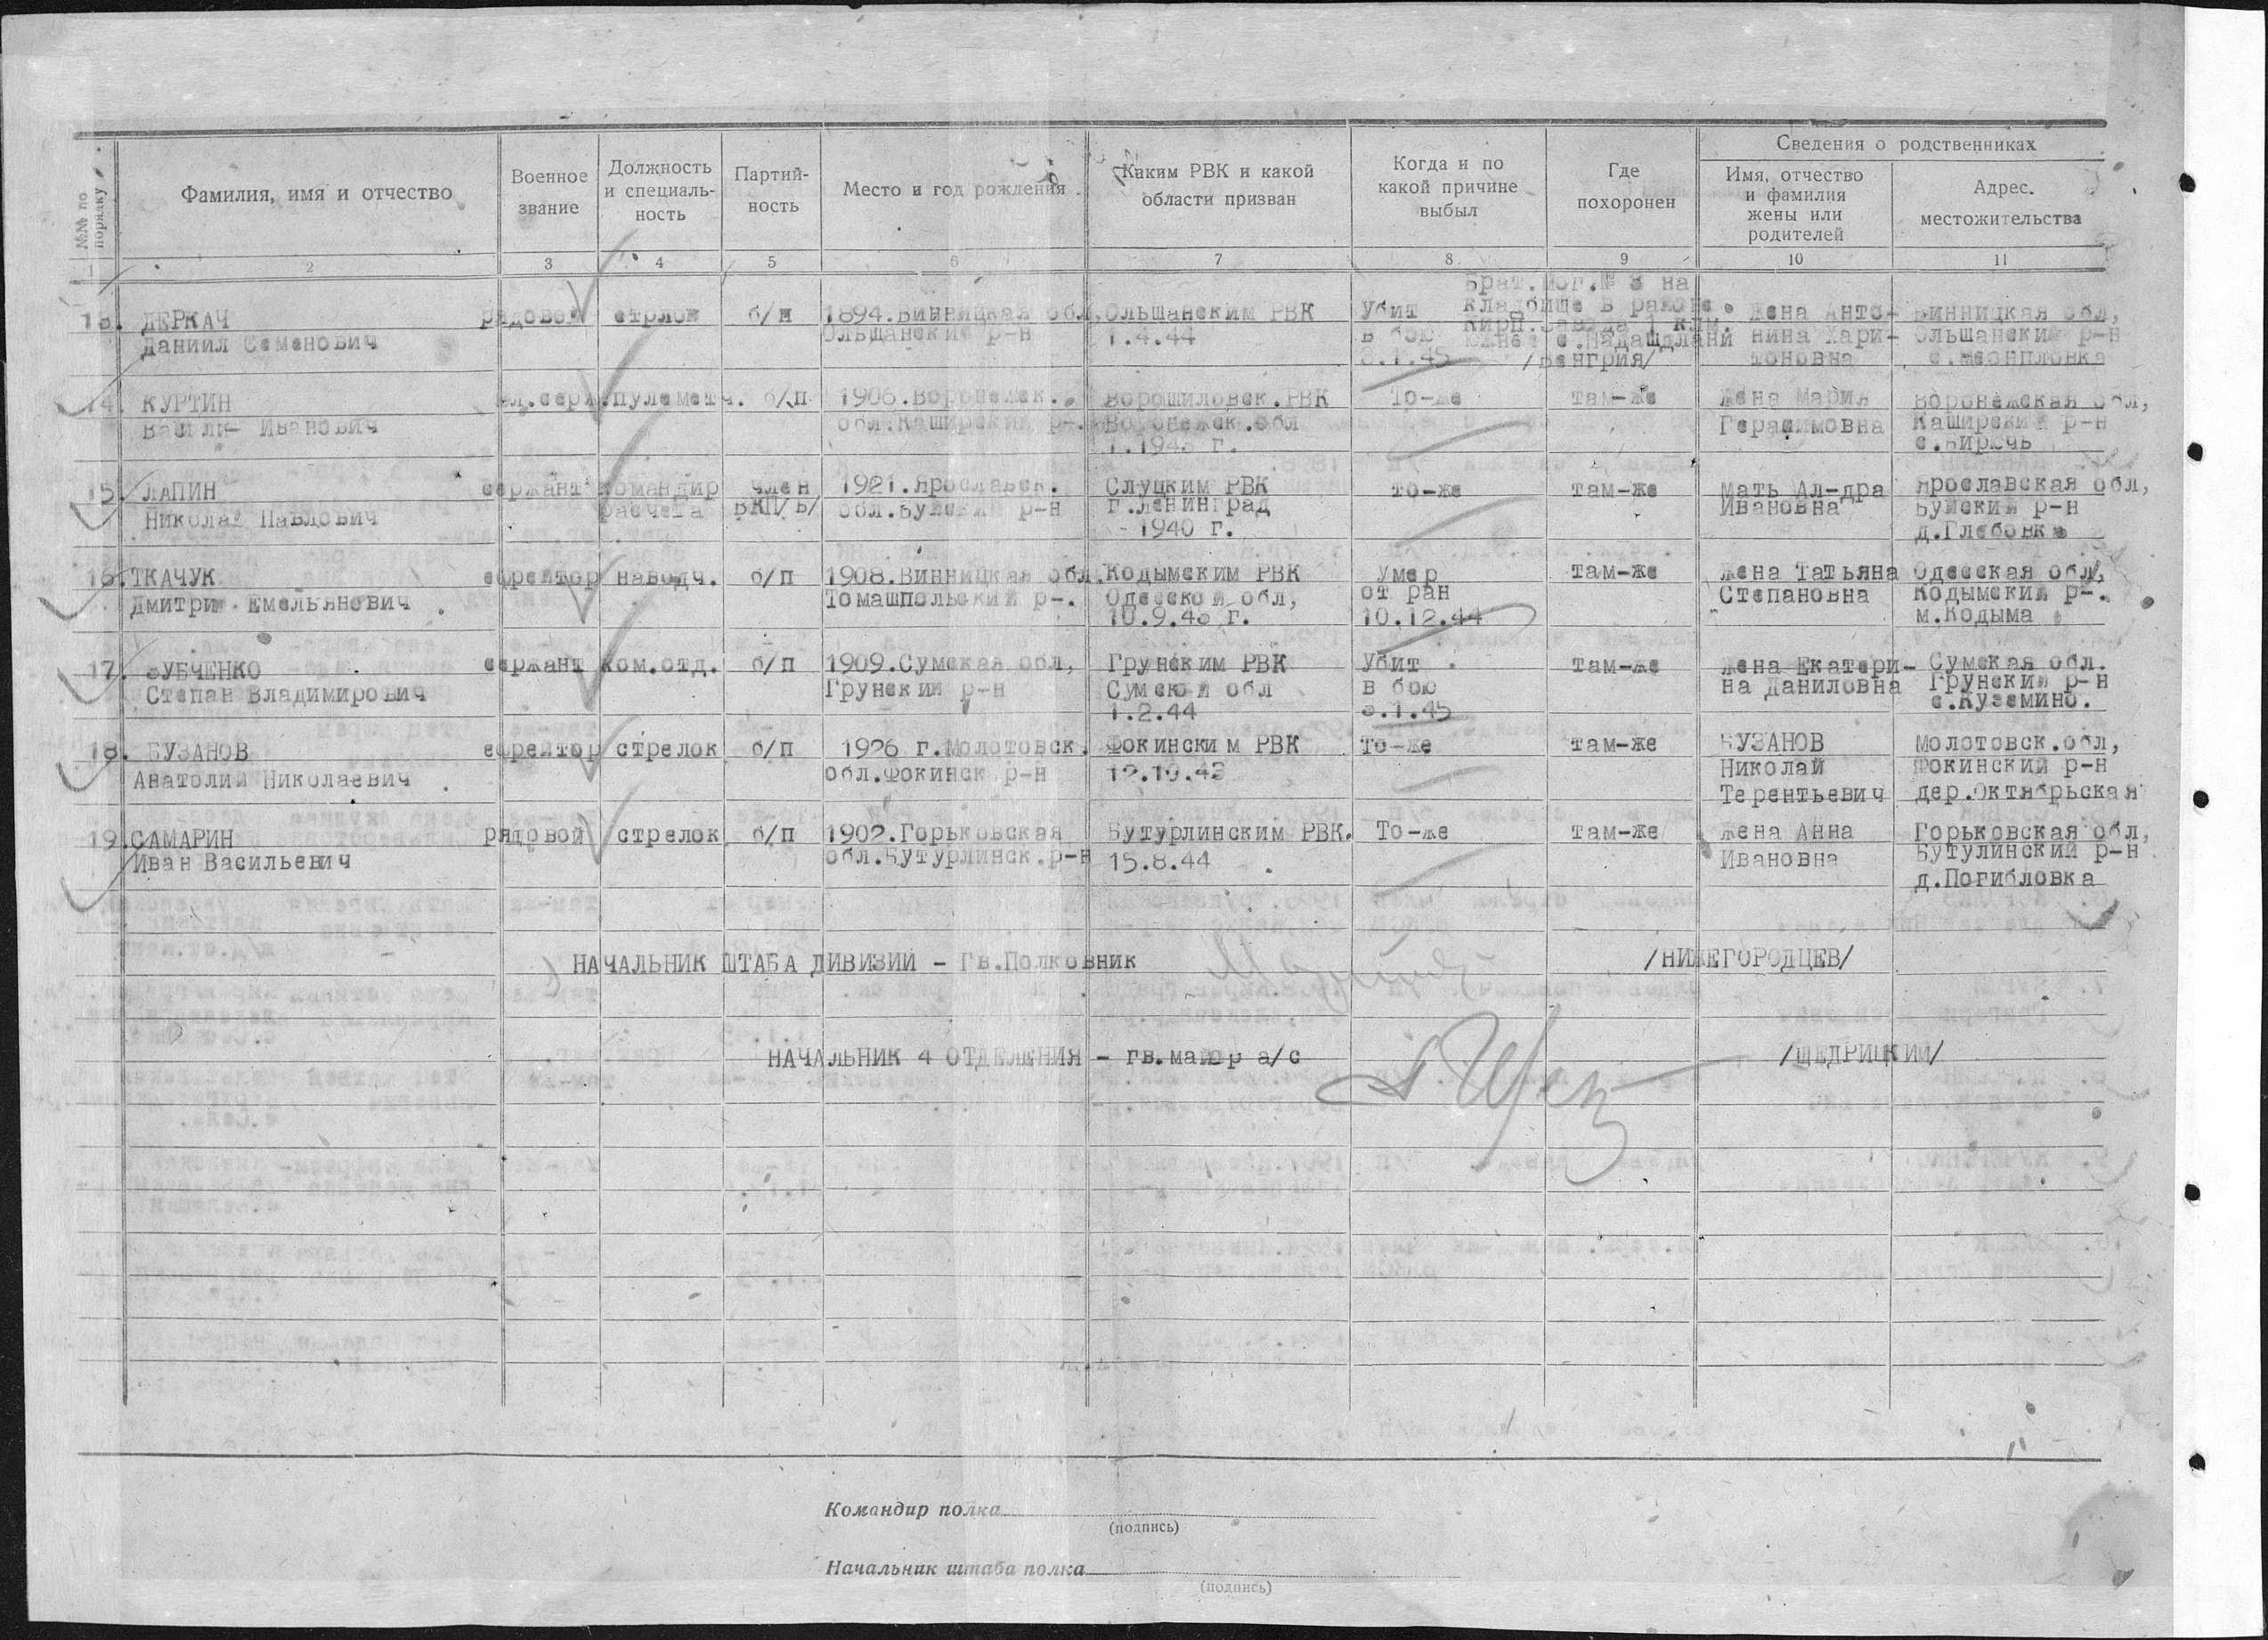 №№ по порядку
Фамилия, имя и отчество
Военное звание
Должность и специаль-ность
Партий-ность
Место и год рождения
Каким РВК и какой области призван
Когда и по какой причине выбыл
Где похоронен
Сведения о родственниках
Имя, отчество и фамилия жены или родителей
Адрес. местожительства
1 2 3 4 5 6 7 8 9 10 11
Брат.мог.№ 8 на
13. ДЕРКАЧ рядовой стрлок б/п 1894.Винницкая обл, Ольшанским РВК Убит кладбище в районе Жена Анто- Винницкая обл,
Даниил Семенович Ольшанский р-н 1.4.44 в бою кирп.завода 1 клм. нина Хари- Ольшанский р-н
южнее с.Надашдлани тоновна
/Венгрия/
14. КУРТИН мл.серж. пулеметч. б/п 1906.Воронежск. Ворошиловск.РВК То-же там-же Жена Мария Воронежская обл,
Иванович обл.Каширский р-. Воронежск.обл Герасимовна Каширский р-н
с.Бирючь
15. ЛАПИН сержант командир член 1921.Ярославск. Слуцким РВК то-же там-же Мать Ал-дра Ярославская обл,
Николай Павлович расчета ВКП/б/ обл.Буйский р-н г.Ленинград Ивановна Буйский р-н
1940 г. д.Глебовка
16. ТКАЧУК ефрейтор наводч. б/п 1908.Винницкая обл. Кодымским РВК Умер там-же Жена Татьяна Одесская обл,
Дмитрий Емельянович Томашпольский р-. Одесской обл, от ран Степановна Кодымский р-.
10.12.44 м.Кодыма
17. сержант ком.отд. б/п 1909.Сумская обл, Грунским РВК Убит там-же Жена Екатери- Сумская обл.
Степан Владимирович Грунский р-н Сумской обл в бою на Даниловна Грунский р-н
1.2.44 с.Куземино.
18. БУЗАНОВ ефрейтор стрелок б/п 1926 г.Молотовск. Фокинским РВК То-же там-же БУЗАНОВ Молотовск.обл,
Анатолий Николаевич обл.Фокинск р-н Николай Фокинский р-н
Терентьевич дер.Октябрьская
19. САМАРИН рядовой стрелок б/п 1902.Горьковская Бутурлинским РВК. То-же там-же Жена Анна Горьковская обл,
Иван Васильевич обл.Бутурлинск.р-н 15.8.44 Ивановна Бутулинский р-н
д.Погибловка
НАЧАЛЬНИК ШТАБА ДИВИЗИИ - Гв.Полковник /НИЖЕГОРОДЦЕВ/
НАЧАЛЬНИК 4 ОТДЕЛЕНИЯ - гв.майор а/с /ЩЕДРИЦКИЙ/
Командир полка
(подпись)
Начальник штаба полка
(подпись)